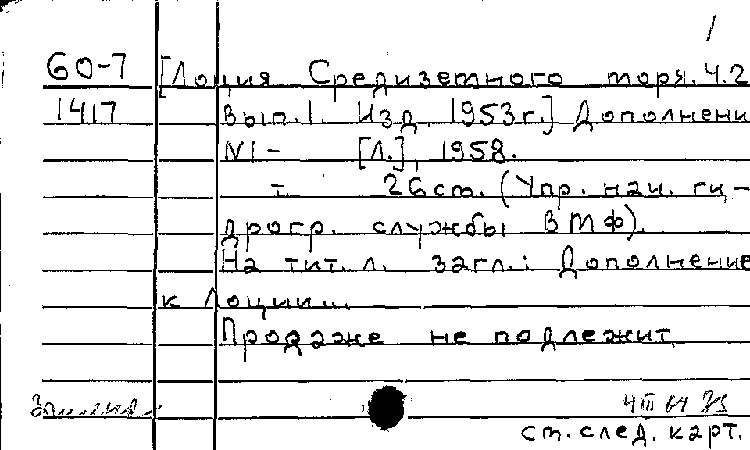 1
60-7 [Лоция Средиземного моря. Ч.2
1417 Вып.1. Изд. 1953г.] Дополнени
N1- [Л.], 1958.
т. 26 см. (Упр. нач. ги-
дрогр. службы ВМФ).
На тит. л. загл.: Дополнение
к Лоции...
Продаже не подлежит.
4 III 64
ст. след. карт.